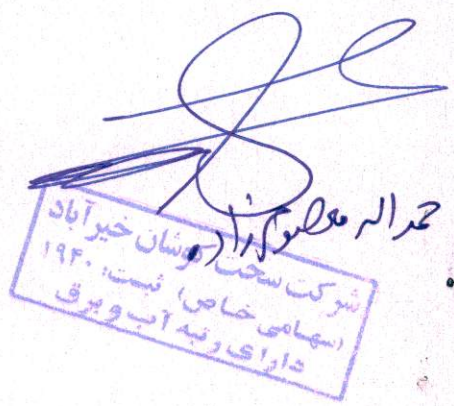 حمداله معصوم زاده
شرکت سخت کوشان خیرآباد
(سهامی خاص) ثبت: ۱۹۴۰
دارای رتبه آب و برق